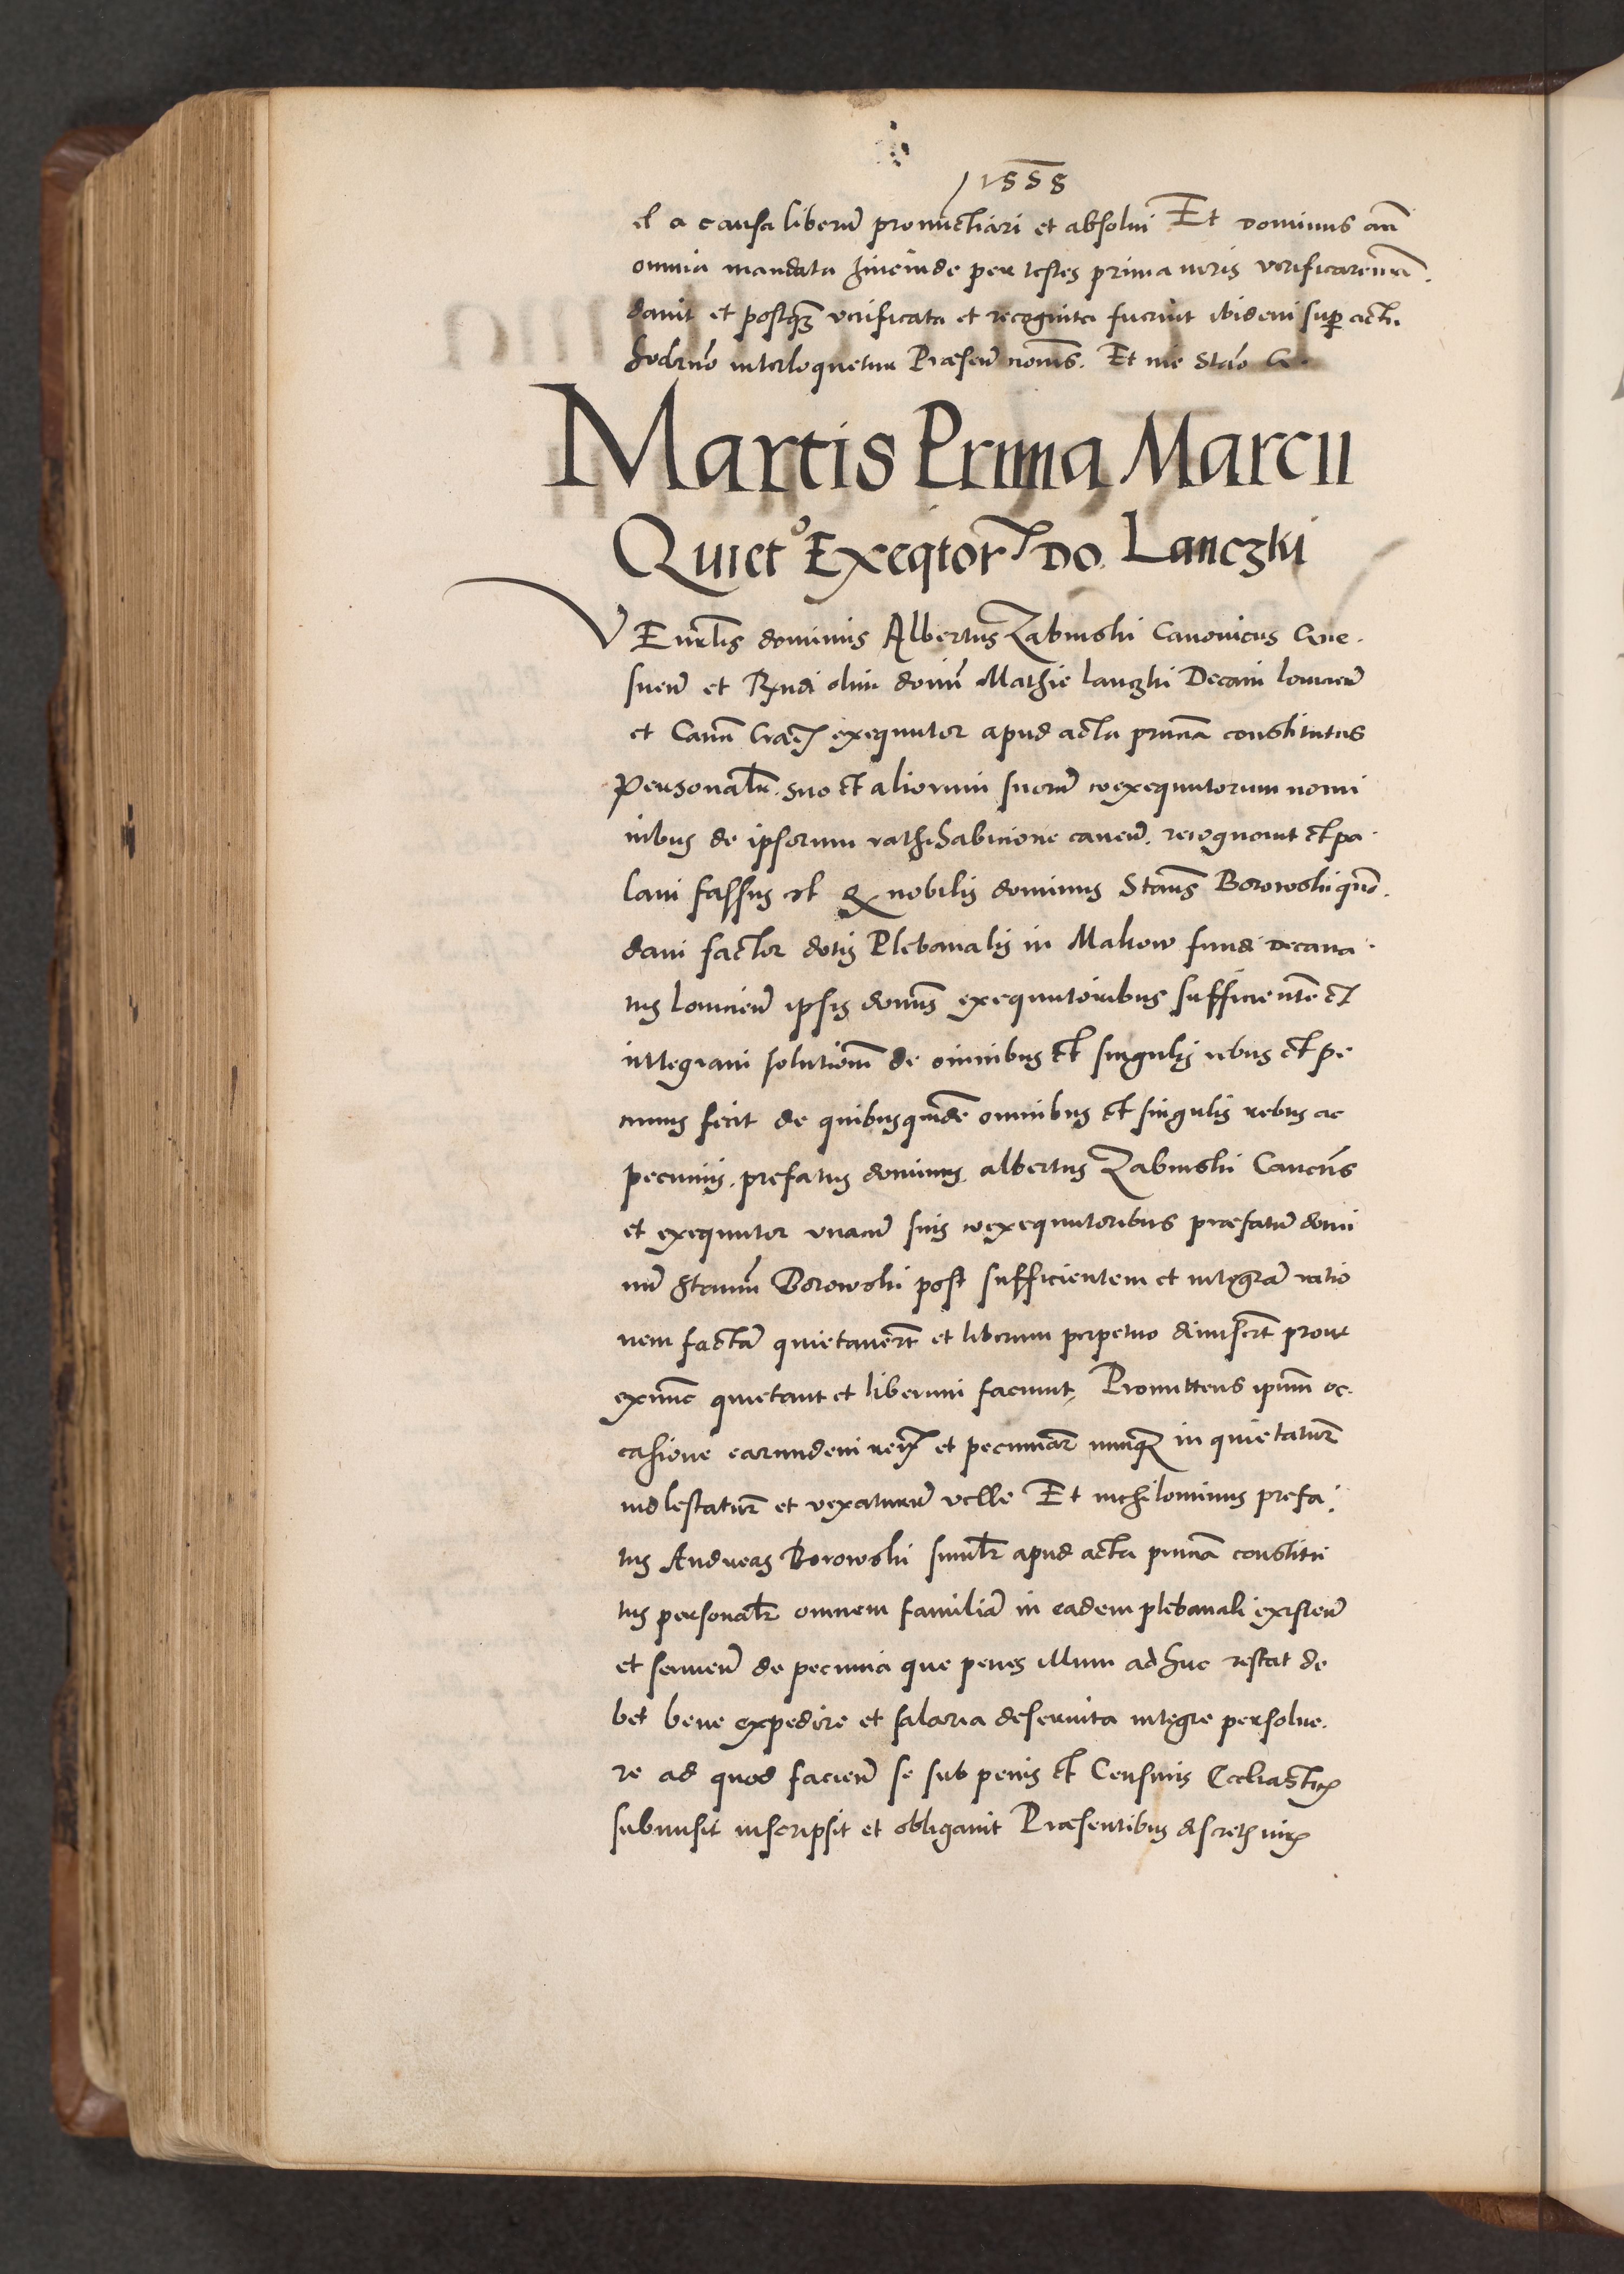 1558
et a causa liberum pronunctiari et absolui Et dominus an̄
omnia mandata hincinde per testes prima iuris verificare man
dauit et postq̄ verificata et recognita fuerint ibidem sup actu
hodierno interloquetur Præsen̄ notariis. Et me Stāo G.
Martis Prima Marcii
Quiet° Exeqtor Do Lanczki
VEnerlis dominus Albertus Zabinski Canonicus Gne.
snen̄ et Rndi olim domi Mathie lanczki Decani louicien̄
et Canon Crac exequutor apud acta prntia constitutus
personalr. suo et aliorum suorū coexequutorum nomi
nibus de ipsorum rathihabicione cauen̄. recognouit et pa.
lam fassus est Q nobilis dominus Stan̄s Borowski quon.
dam factor dotis Plebanalis in Makow fundi decana.
tus louicien̄ ipsis domīs exequutoribus sufficientē et
integram solutionē de omnibus et singulis rebus et pe
cuniis fecit de quibusquidē omnibus et singulis rebus ac
pecuniis. prefatus dominus albertus Zabinski Canon̄s
et exequutor vnacū suis coexequutoribus præfatū domi
nū Stanm Borowski post sufficientem et integrā ratio
nem factā quietauerūt et liberum perpetuo dimiserūt prout
exnunc quietant et liberum faciunt, Promittens ipsum oc.
casione earundem rerū et pecuniarū nunq̄ inquietaturū
molestaturū et vexaturū velle Et nichilominus prefa.
tus Andreas Borowski similr apud acta prntia constitu
tus personalr omnem familiā in eadem plebanali existen̄
et seruien̄ de pecunia que penes illum adhuc restat de
bet bene expedire et salaria deseruita integre persolue.
re ad quod facien̄ se sub penis et Censuris Ecclīasticis
submisit inscripsit et obligauit Præsentibus discretis viris